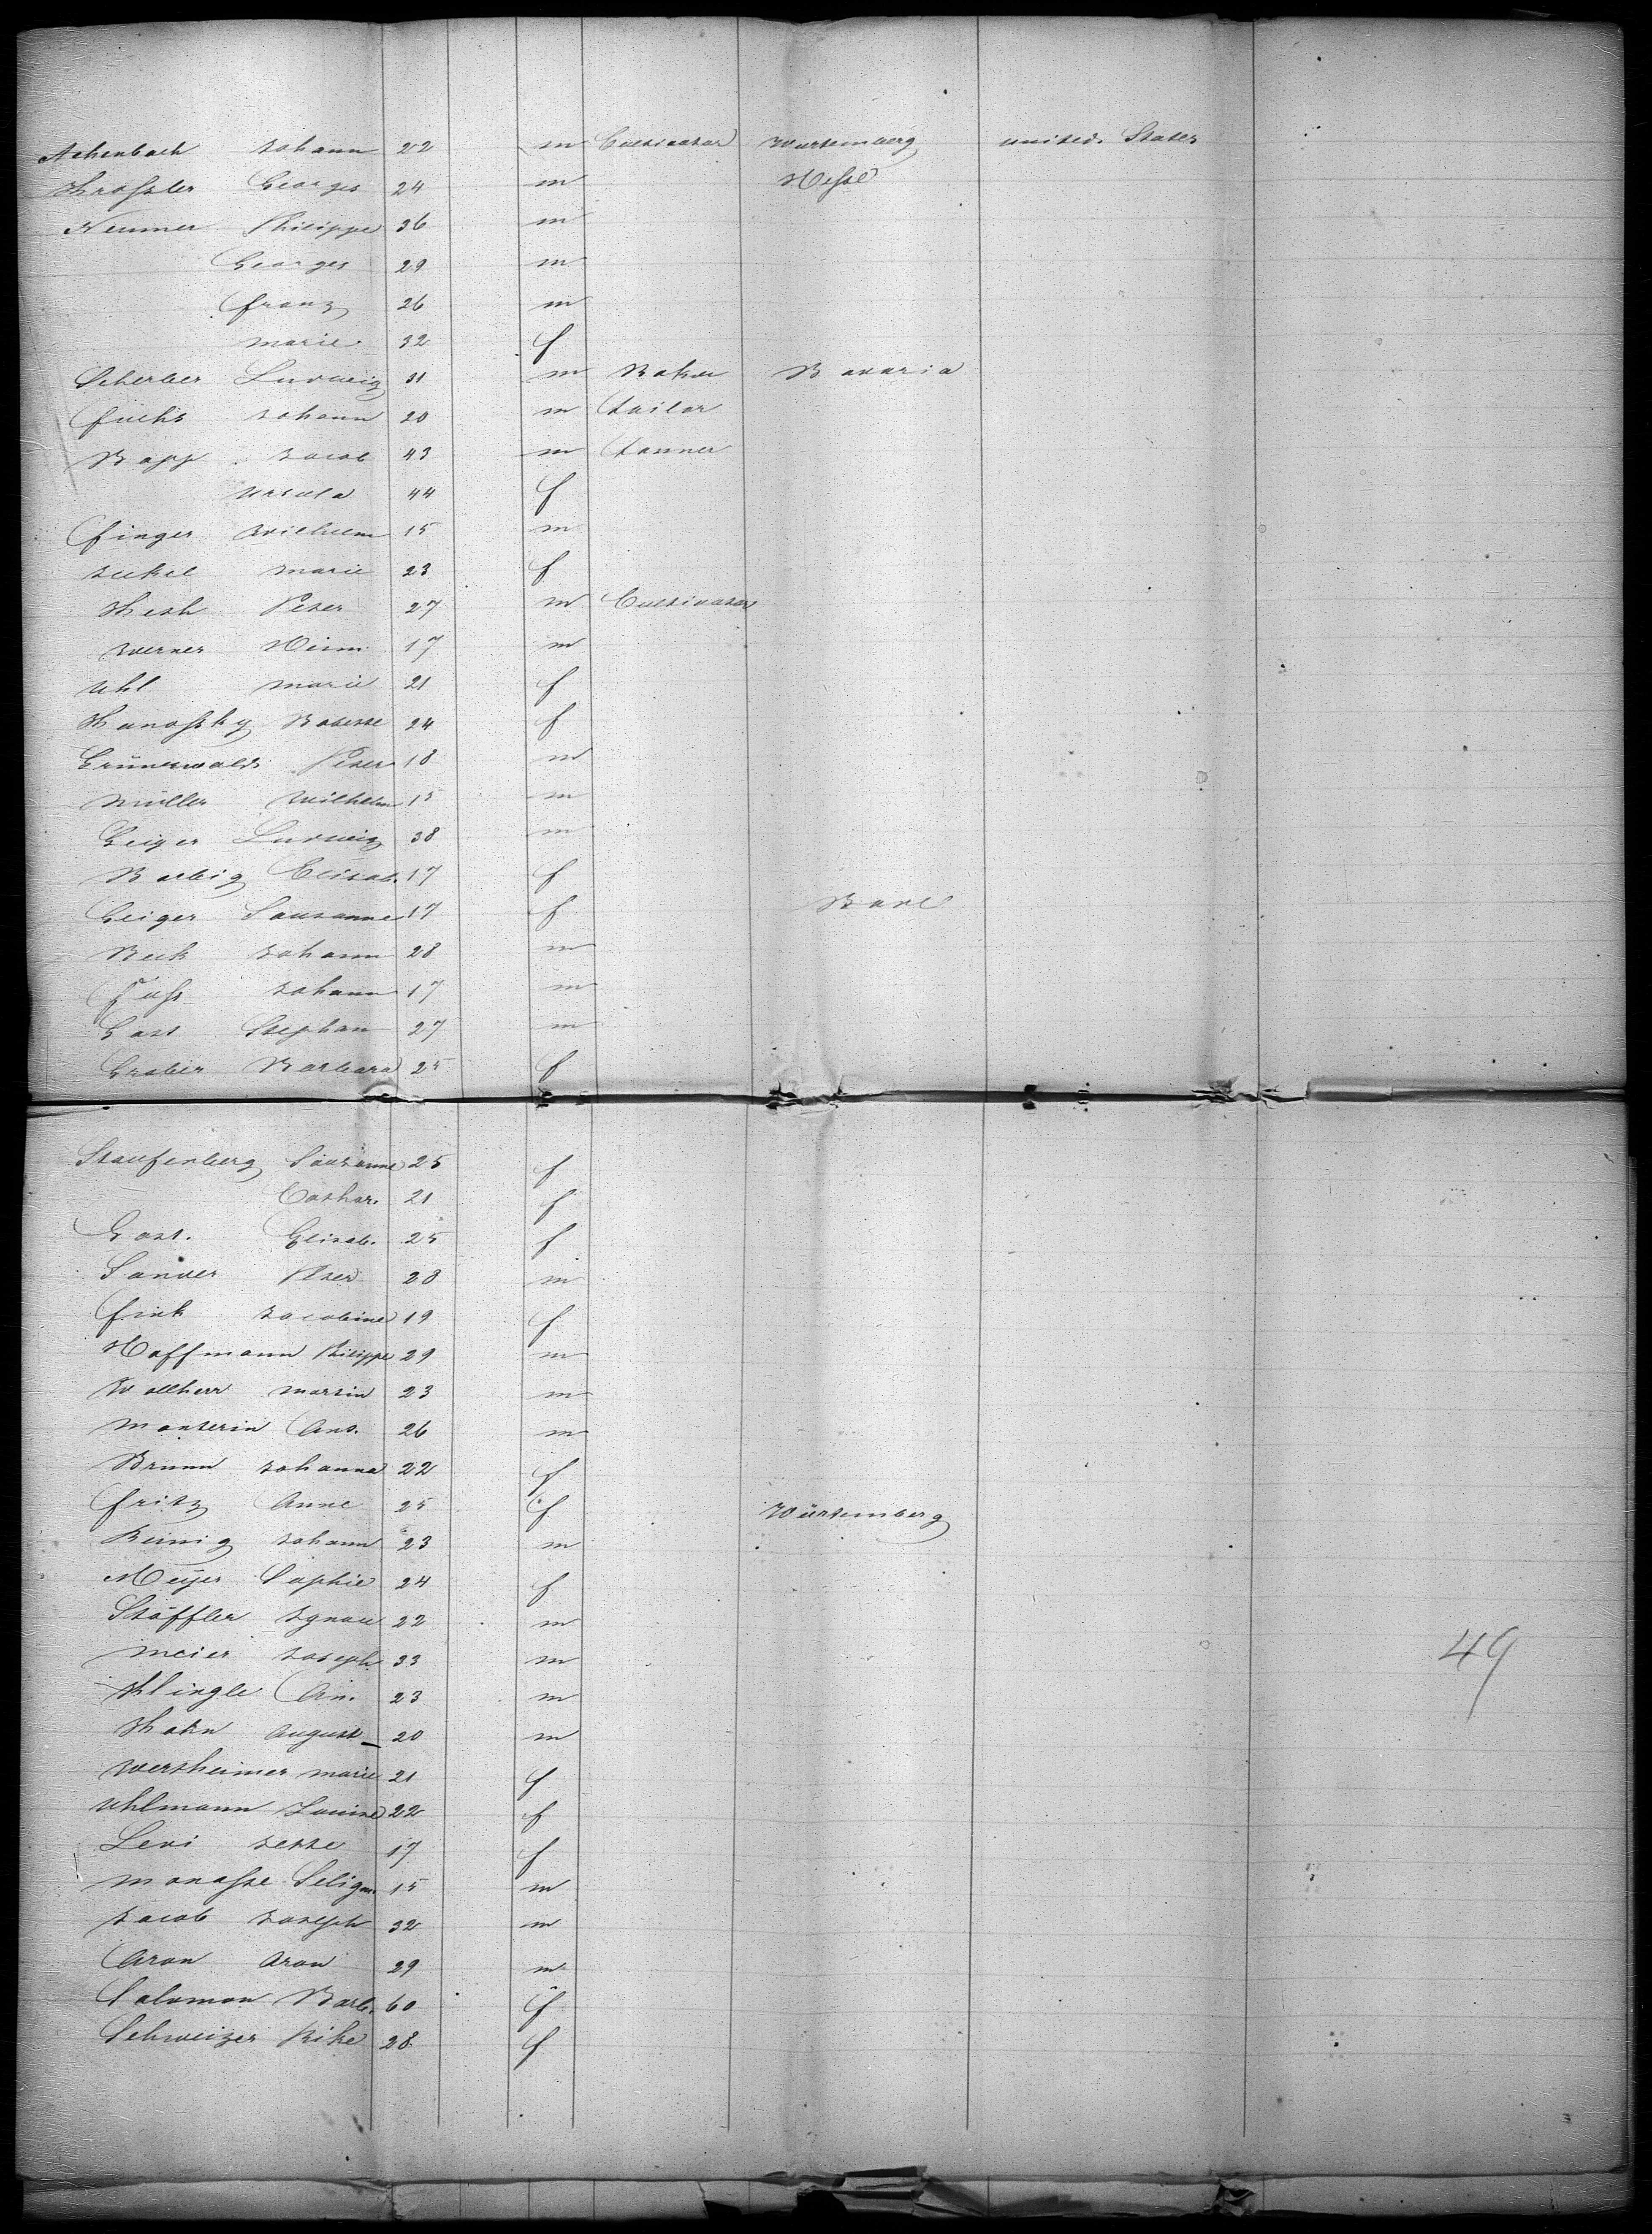 Achenbach Johann 22 m Cultivator Wurtemberg united States
Krossler Georges 24 m Hesse
Neumer Philippe 36 m
Georges 29 m
Franz 26 m
Marie 32 f
Scherber Ludwig 31 m Baker Bavaria
Fuchs Johann 20 m Tailor
Bopp Jacob 43 m Tanner
Ursula 44 f
Finger Wilhelm 15 m
Marie 23 f
Peter 27 m Cultivator
Werner Heinr. 17 m
Uhl Marie 21 f
Babette 24 f
Grünewald Peter 18 m
Müller Wilhelm 15 m
Geiger Ludwig 38 m
Barbig Elisab. 17 f
Geiger Sousanne 17 f Bade
Beck Johann 28 m
Johann 17 m
Gast Stephan 27 m
Graber Barbara 25 f
Staufenberg Sousanne 25 f
Cathar. 21 f
Gast. Elisab. 25 f
Sander Peter 28 m
Fink Jacobine 19 f
Hoffmann Philippe 29 m
Wollherr Martin 23 m
Manterin Ant. 26 m
Brunn Johanna 22 f
Fritz Anne 25 f Würtemberg
Johann 23 m
Meyer Sophie 24 f
Stöffler Ignace 22 m
Meier Joseph 33 m
Klingle An. 23 m
August 20 m
Wertheimer Marie 21 f
Uhlmann Louise 22 f
Levi Jette 17 f
Manasse Seligm. 15 m
Jacob Joseph 32 m
Aron Aron 29 m
Salomon Barb. 60 f
Schweizer Rike 28 f
49